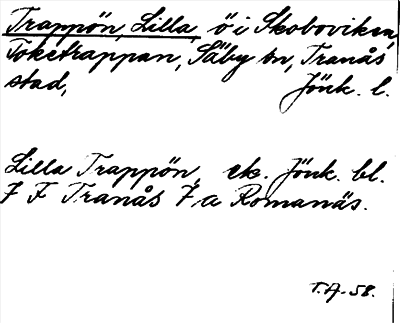 Trappön, Lilla, ö i Skoboviken,
Toketrappan, Säby sn, Tranås
stad, Jönk. l.
Lilla Trappön, ek. Jönk. bl.
7 F Tranås 7 a Romanäs.
T.A-58.